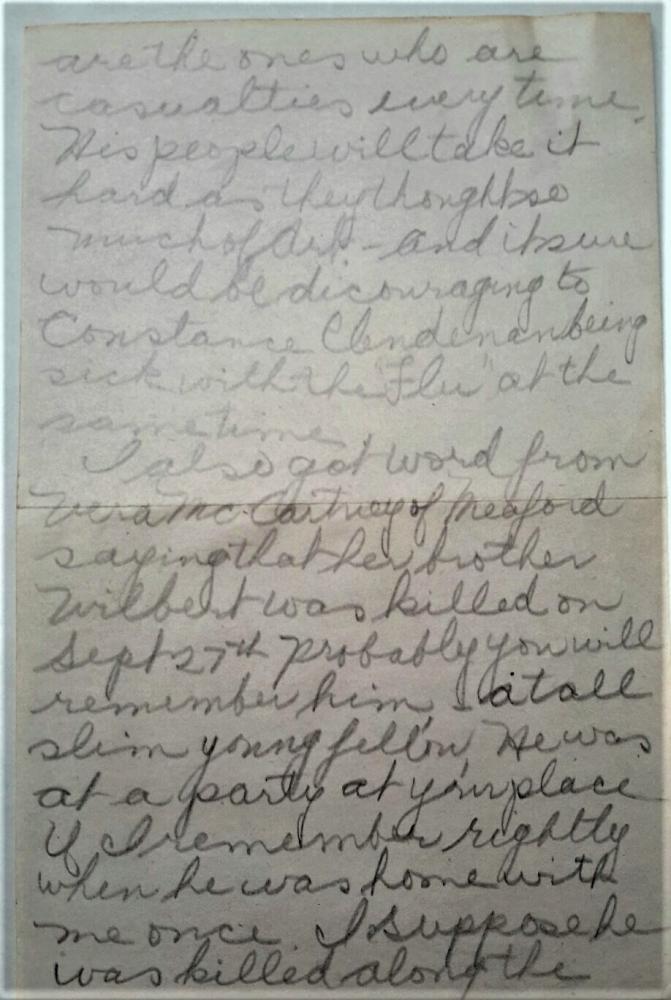 are the ones who are
casualties every time.
His people will take it
hard as they thought so
much of Art. - and it sure
would be dicouraging to
Constance Clendenan being
sick with the "Flu" at the
same time.
I also got word from
Vera McCartney of Meaford
saying that her brother
Wilbert was killed on
Sept 27th Probably you will
remember him - a tall
slim young fellow, He was
at a party at your place
if I remember rightly
when he was home with
me once. I suppose he
was killed along the